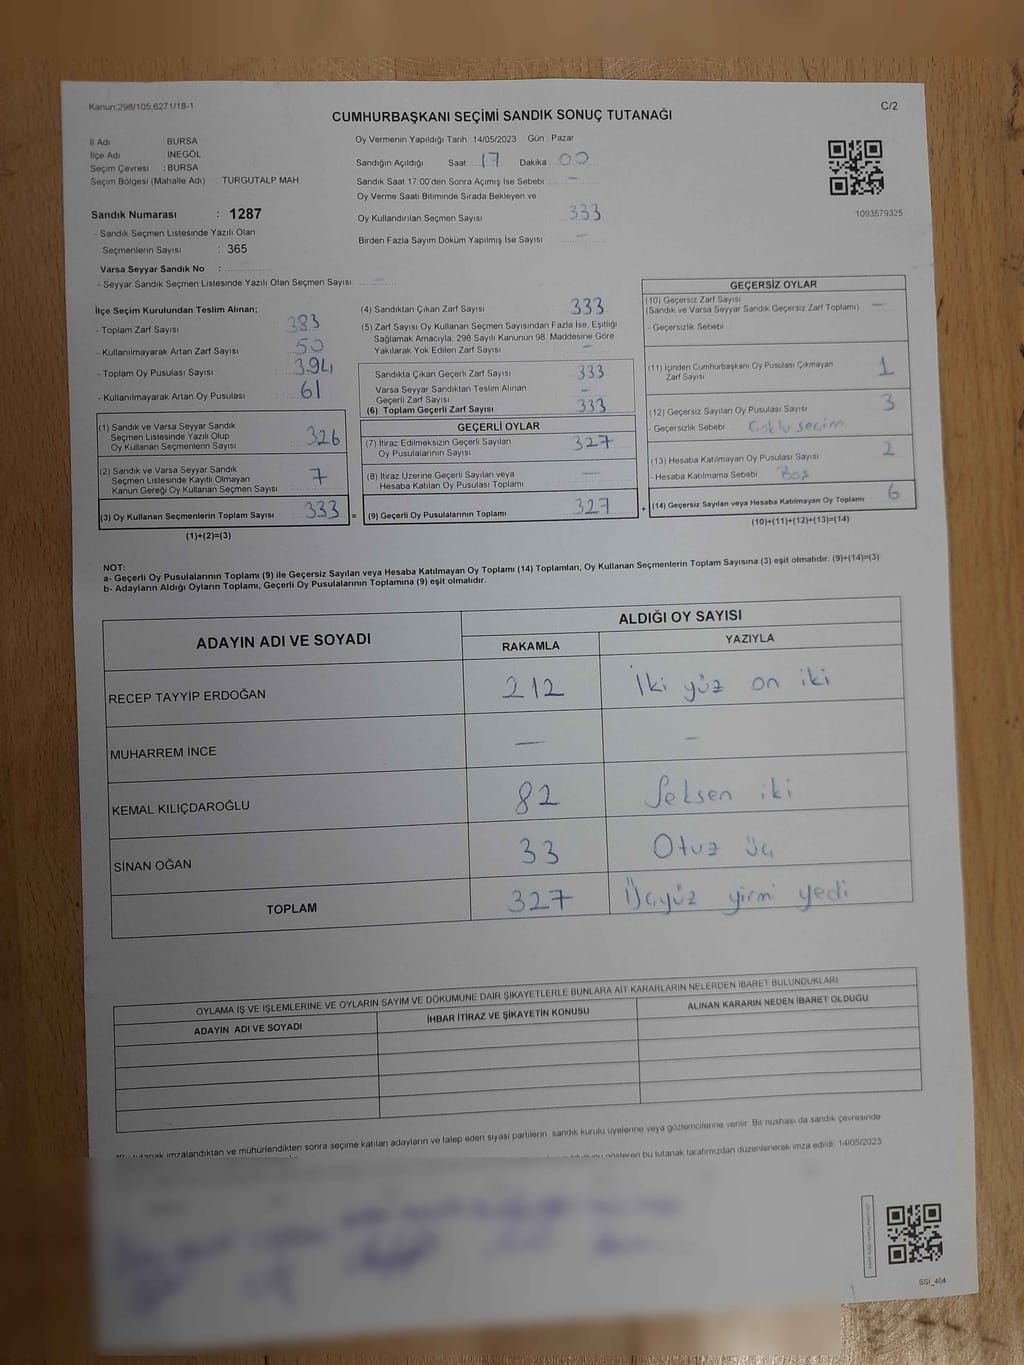 Kanun:298/105,6271/18-1
C/2
CUMHURBAŞKANI SEÇİMİ SANDIK SONUÇ TUTANAĞI
İl Adı BURSA
İlçe Adı İNEGÖL
Seçim Çevresi : BURSA
Seçim Bölgesi (Mahalle Adı) : TURGUTALP MAH.
Oy Vermenin Yapıldığı Tarih : 14/05/2023 Gün : Pazar
Sandığın Açıldığı Saat : 17 Dakika : 00
Sandık Saat 17:00'den Sonra Açımış İse Sebebi : —
Oy Verme Saati Bitiminde Sırada Bekleyen ve
Oy Kullandırılan Seçmen Sayısı 333
Birden Fazla Sayım Döküm Yapılmış İse Sayısı : —
1093579325
Sandık Numarası : 1287
- Sandık Seçmen Listesinde Yazılı Olan
Seçmenlerin Sayısı : 365
Varsa Seyyar Sandık No :
- Seyyar Sandık Seçmen Listesinde Yazılı Olan Seçmen Sayısı: —
İlçe Seçim Kurulundan Teslim Alınan;
- Toplam Zarf Sayısı 383
- Kullanılmayarak Artan Zarf Sayısı 50
- Toplam Oy Pusulası Sayısı 394
- Kullanılmayarak Artan Oy Pusulası 61
(1) Sandık ve Varsa Seyyar Sandık
Seçmen Listesinde Yazılı Olup
Oy Kullanan Seçmenlerin Sayısı 326
(2) Sandık ve Varsa Seyyar Sandık
Seçmen Listesinde Kayıtlı Olmayan
Kanun Gereği Oy Kullanan Seçmen Sayısı 7
(3) Oy Kullanan Seçmenlerin Toplam Sayısı 333 =
(1)+(2)=(3)
(4) Sandıktan Çıkan Zarf Sayısı 333
(5) Zarf Sayısı Oy Kullanan Seçmen Sayısından Fazla İse, Eşitliği
Sağlamak Amacıyla, 298 Sayılı Kanunun 98. Maddesine Göre
Yakılarak Yok Edilen Zarf Sayısı —
Sandıkta Çıkan Geçerli Zarf Sayısı 333
Varsa Seyyar Sandıktan Teslim Alınan
Geçerli Zarf Sayısı —
(6) Toplam Geçerli Zarf Sayısı 333
GEÇERLİ OYLAR
(7) İtiraz Edilmeksizin Geçerli Sayılan
Oy Pusulalarının Sayısı 327
(8) İtiraz Üzerine Geçerli Sayılan veya
Hesaba Katılan Oy Pusulası Toplamı —
(9) Geçerli Oy Pusulalarının Toplamı 327 +
GEÇERSİZ OYLAR
(10) Geçersiz Zarf Sayısı
(Sandık ve Varsa Seyyar Sandık Geçersiz Zarf Toplamı) —
- Geçersizlik Sebebi
(11) İçinden Cumhurbaşkanı Oy Pusulası Çıkmayan
Zarf Sayısı 1
(12) Geçersiz Sayılan Oy Pusulası Sayısı 3
- Geçersizlik Sebebi Çoklu seçim
(13) Hesaba Katılmayan Oy Pusulası Sayısı 2
- Hesaba Katılmama Sebebi Boş
(14) Geçersiz Sayılan veya Hesaba Katılmayan Oy Toplamı 6
(10)+(11)+(12)+(13)=(14)
NOT:
a- Geçerli Oy Pusulalarının Toplamı (9) ile Geçersiz Sayılan veya Hesaba Katılmayan Oy Toplamı (14) Toplamları, Oy Kullanan Seçmenlerin Toplam Sayısına (3) eşit olmalıdır. (9)+(14)=(3)
b- Adayların Aldığı Oyların Toplamı, Geçerli Oy Pusulalarının Toplamına (9) eşit olmalıdır.
ADAYIN ADI VE SOYADI ALDIĞI OY SAYISI
RAKAMLA YAZIYLA
RECEP TAYYİP ERDOĞAN 212 İki yüz on iki
MUHARREM İNCE — —
KEMAL KILIÇDAROĞLU 82 Seksen iki
SİNAN OĞAN 33 Otuz üç
TOPLAM 327 Üçyüz yirmi yedi
OYLAMA İŞ VE İŞLEMLERİNE VE OYLARIN SAYIM VE DÖKÜMÜNE DAİR ŞİKAYETLERLE BUNLARA AİT KARARLARIN NELERDEN İBARET BULUNDUKLARI
ADAYIN ADI VE SOYADI İHBAR İTİRAZ VE ŞİKAYETİN KONUSU ALINAN KARARIN NEDEN İBARET OLDUĞU
tutanak imzalandıktan ve mühürlendikten sonra seçime katılan adayların ve talep eden siyasi partilerin sandık kurulu üyelerine veya gözlemcilerine verilir. Bir nushası da sandık çevresinde
gösteren bu tutanak tarafımızdan düzenlenerek imza edildi. 14/05/2023
SSI_404